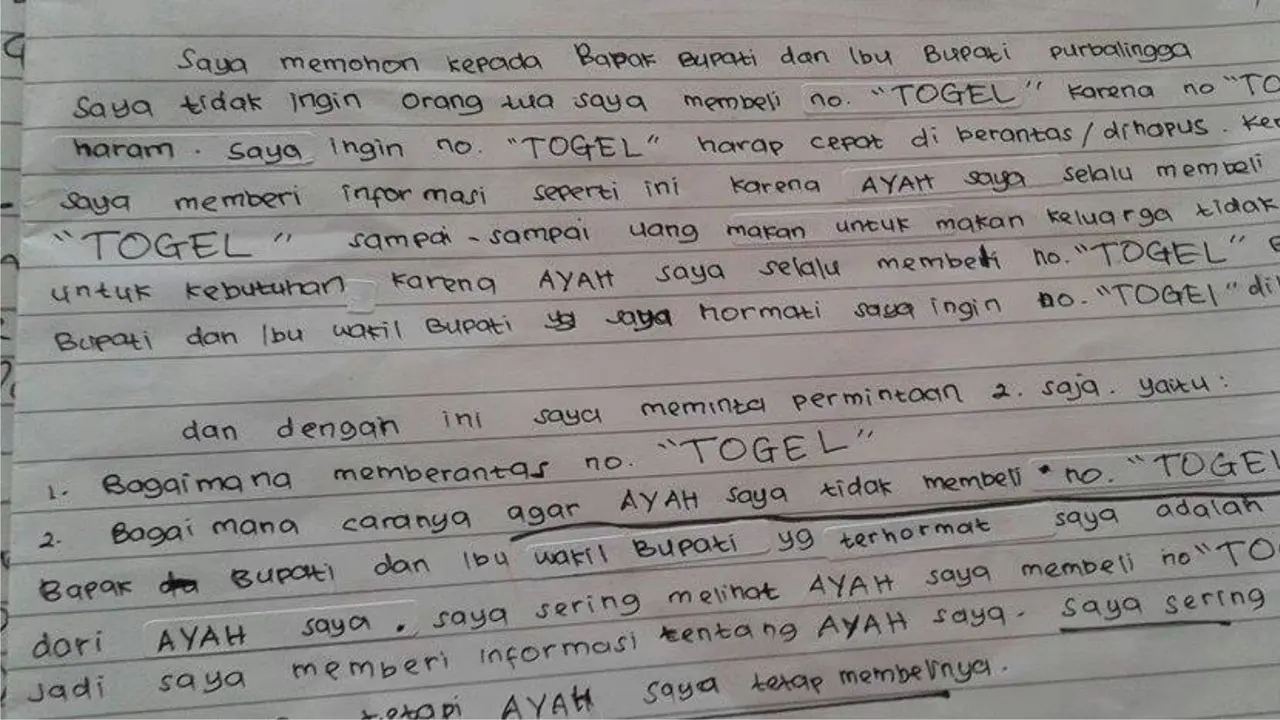 Saya memohon kepada Bapak Bupati dan Ibu Bupati purbalingga
Saya tidak ingin orang tua saya membeli no. "TOGEL" karena no "TO
haram. saya ingin no. "TOGEL" harap cepat di berantas/dihapus. Ke
saya memberi informasi seperti ini karena AYAH saya selalu membeli
"TOGEL" sampai-sampai uang makan untuk makan keluarga tidak
untuk kebutuhan karena AYAH saya selalu membeli no. "TOGEL"
Bupati dan Ibu wakil Bupati yg saya hormati saya ingin no. "TOGEL" di
dan dengan ini saya meminta permintaan 2. saja. yaitu:
1. Bagaimana memberantas no. "TOGEL"
2. Bagai mana caranya agar AYAH saya tidak membeli no. "TOGEL
Bapak Bupati dan Ibu wakil Bupati yg terhormat saya adalah
dari AYAH saya. saya sering melihat AYAH saya membeli no "TO
Jadi saya memberi informasi tentang AYAH saya. saya sering
tetapi AYAH saya tetap membelinya.